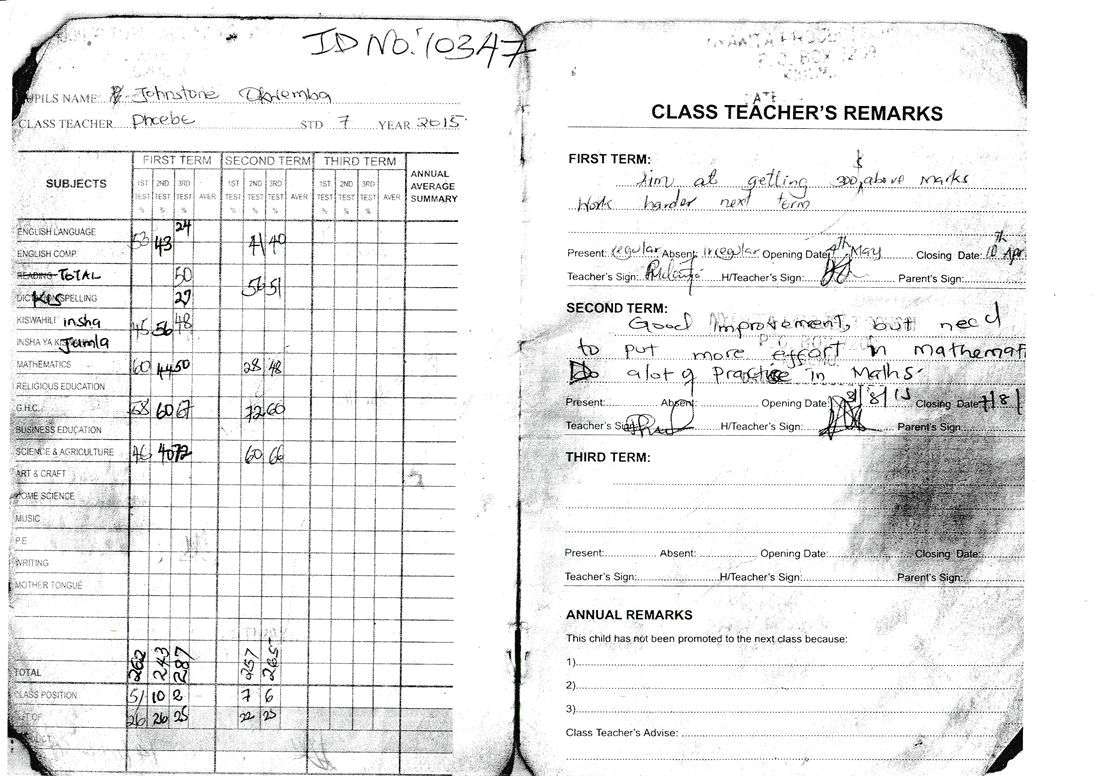 ID No: 10347
PUPILS NAME Johnstone
CLASS TEACHER Phoebe STD 7 YEAR 2015
SUBJECTS FIRST TERM SECOND TERM THIRD TERM ANNUAL AVERAGE SUMMARY
1ST TEST % 2ND TEST % 3RD TEST % AVER 1ST TEST % 2ND TEST % 3RD TEST % AVER 1ST TEST % 2ND TEST % 3RD TEST % AVER
ENGLISH LANGUAGE 53 43 24 41 40
ENGLISH COMP.
READING TOTAL 50 56 51
SPELLING 27
KISWAHILI insha 45 56 48
INSHA YA Jumla
MATHEMATICS 60 44 50 28 48
RELIGIOUS EDUCATION
G.H.C. 58 60 67 72 60
BUSINESS EDUCATION
SCIENCE & AGRICULTURE 46 40 72 60 66
ART & CRAFT
HOME SCIENCE
MUSIC
P.E
WRITING
MOTHER TONGUE
TOTAL 262 243 287 257 265
CLASS POSITION 5 10 2 7 6
OUT OF 26 26 25 22 25
CLASS TEACHER'S REMARKS
FIRST TERM:
Aim at getting 300, above marks
Work harder next term
Present: regular Absent: irregular Opening Date: 4th May Closing Date: 10th Apr
Teacher's Sign: H/Teacher's Sign: Parent's Sign:
SECOND TERM:
Good Improvement, but need
to put more effort in mathemat
Do alot of practice in Maths.
Present: Absent: Opening Date: 8/15 Closing Date: 7/8/
Teacher's Sign: H/Teacher's Sign: Parent's Sign:
THIRD TERM:
Present: Absent: Opening Date: Closing Date:
Teacher's Sign: H/Teacher's Sign: Parent's Sign:
ANNUAL REMARKS
This child has not been promoted to the next class because:
1)
2)
3)
Class Teacher's Advise: